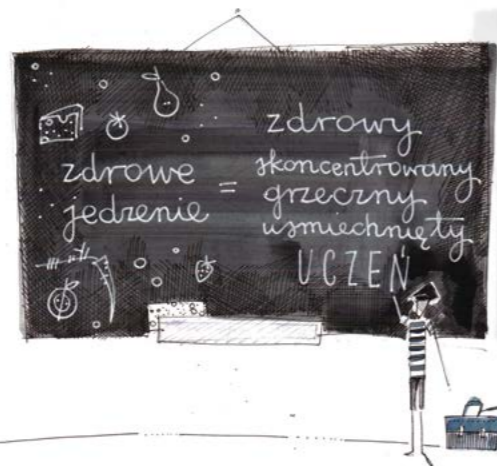 zdrowe
jedzenie
=
zdrowy
skoncentrowany
grzeczny
uśmiechnięty
UCZEŃ